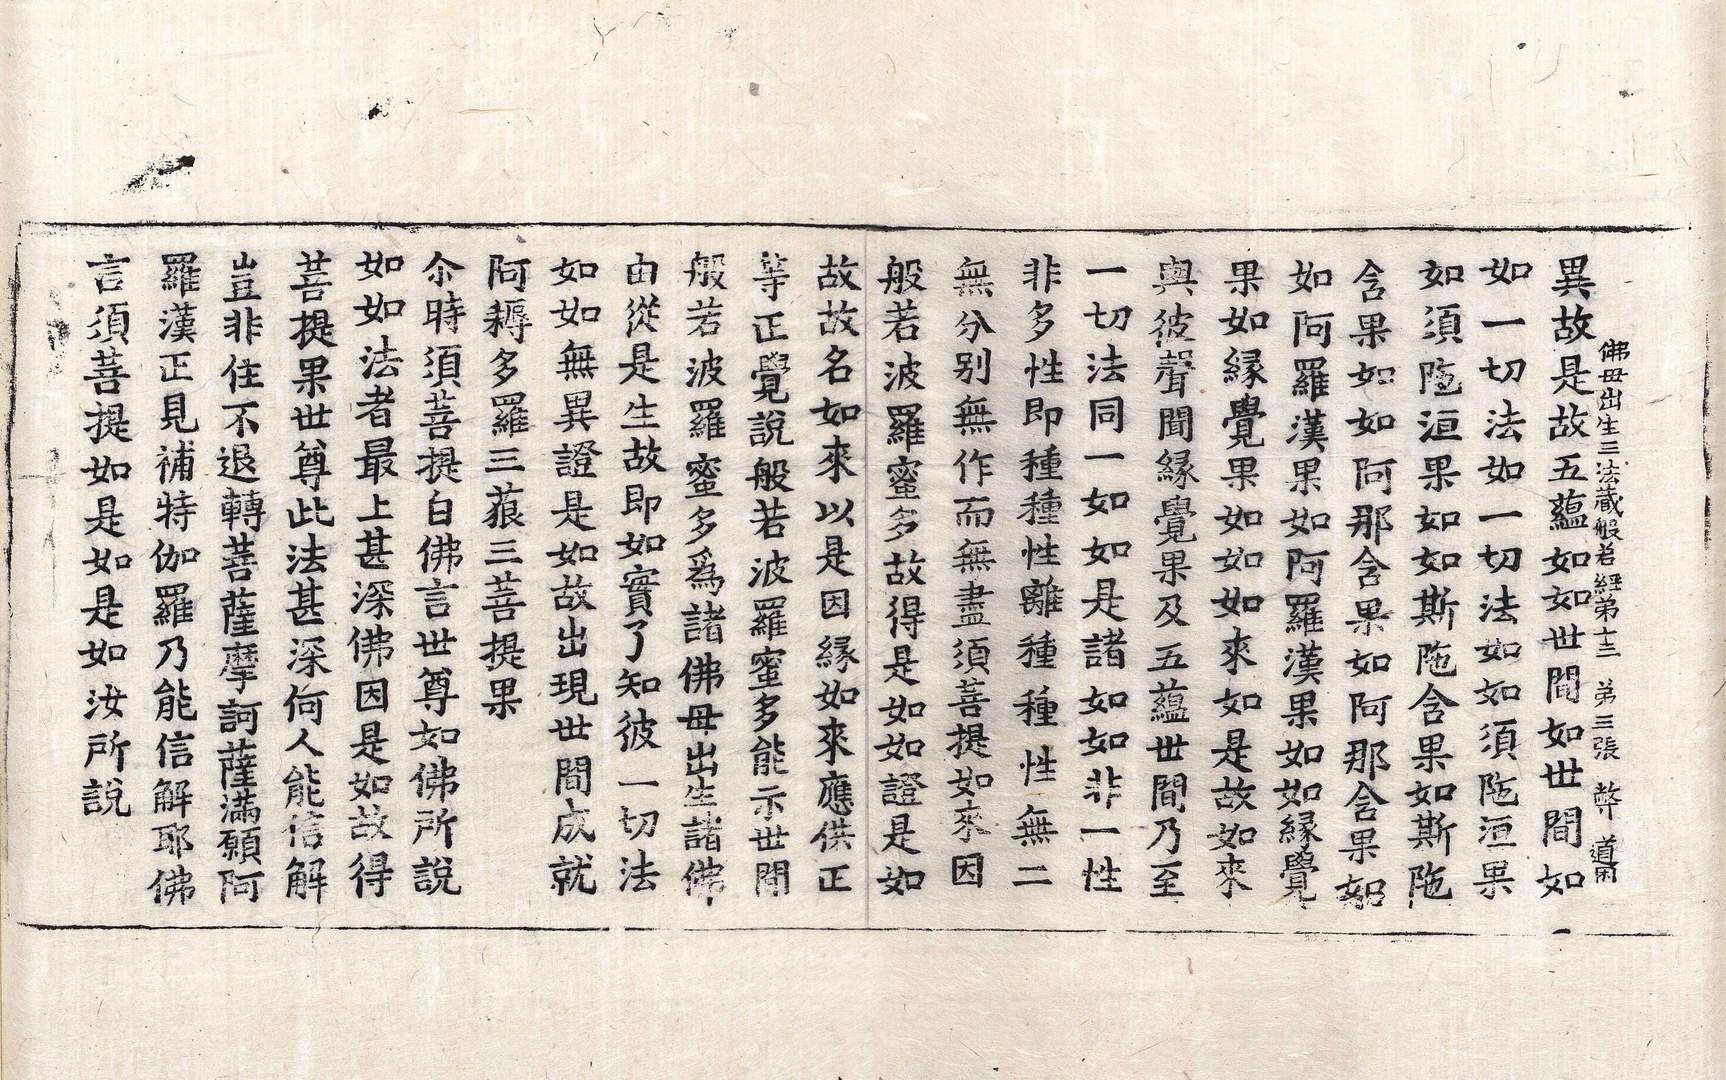 佛母出生三法藏般若經第十三 第三張 弊 道閑
異故是故五蘊如如世間如世間如
如一切法如一切法如如須陁洹果
如須陁洹果如如斯陁含果如斯陁
含果如如阿那含果如阿那含果如
如阿羅漢果如阿羅漢果如如緣覺
果如緣覺果如如如來如是故如來
與彼聲聞緣覺果及五蘊世間乃至
一切法同一如如是諸如如非一性
非多性即種種性離種種性無二
無分別無作而無盡須菩提如來因
般若波羅蜜多故得是如如證是如
故故名如來以是因緣如來應供正
等正覺說般若波羅蜜多能示世間
般若波羅蜜多爲諸佛母出生諸佛
由從是生故即如實了知彼一切法
如如無異證是如故出現世間成就
阿耨多羅三藐三菩提果
尒時須菩提白佛言世尊如佛所說
如如法者最上甚深佛因是如故得
菩提果世尊此法甚深何人能信解
豈非住不退轉菩薩摩訶薩滿願阿
羅漢正見補特伽羅乃能信解耶佛
言須菩提如是如是如汝所說